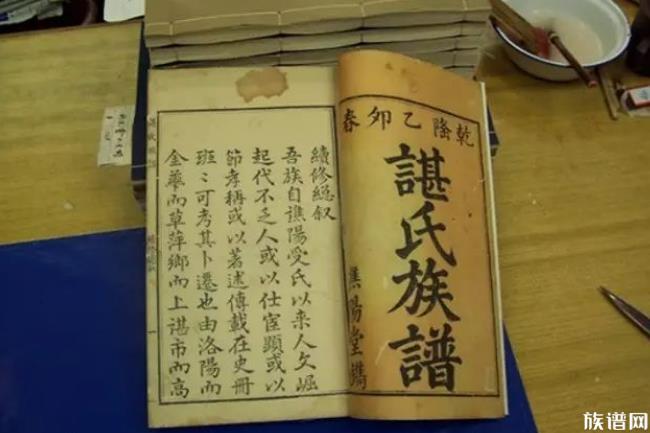 乾隆乙卯春
諶氏族譜
譙陽堂鐫
續修總叙
吾族自譙陽受氏以来人文崛
起代不乏人或以仕宦顯或以
節孝稱或以著述傳載在史冊
班〻可考其卜遷也由洛陽而
金華而草萍鄉而上諶市而高
一
族谱网